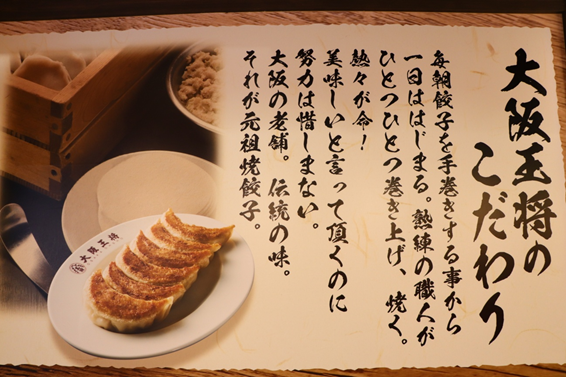 大阪王将の
こだわり
毎朝餃子を手巻きする事から
一日ははじまる。熟練の職人が
ひとつひとつ巻き上げ、焼く。
熱々が命!
美味しいと言って頂くのに
努力は惜しまない。
大阪の老舗。伝統の味。
それが元祖焼餃子。
大阪王将